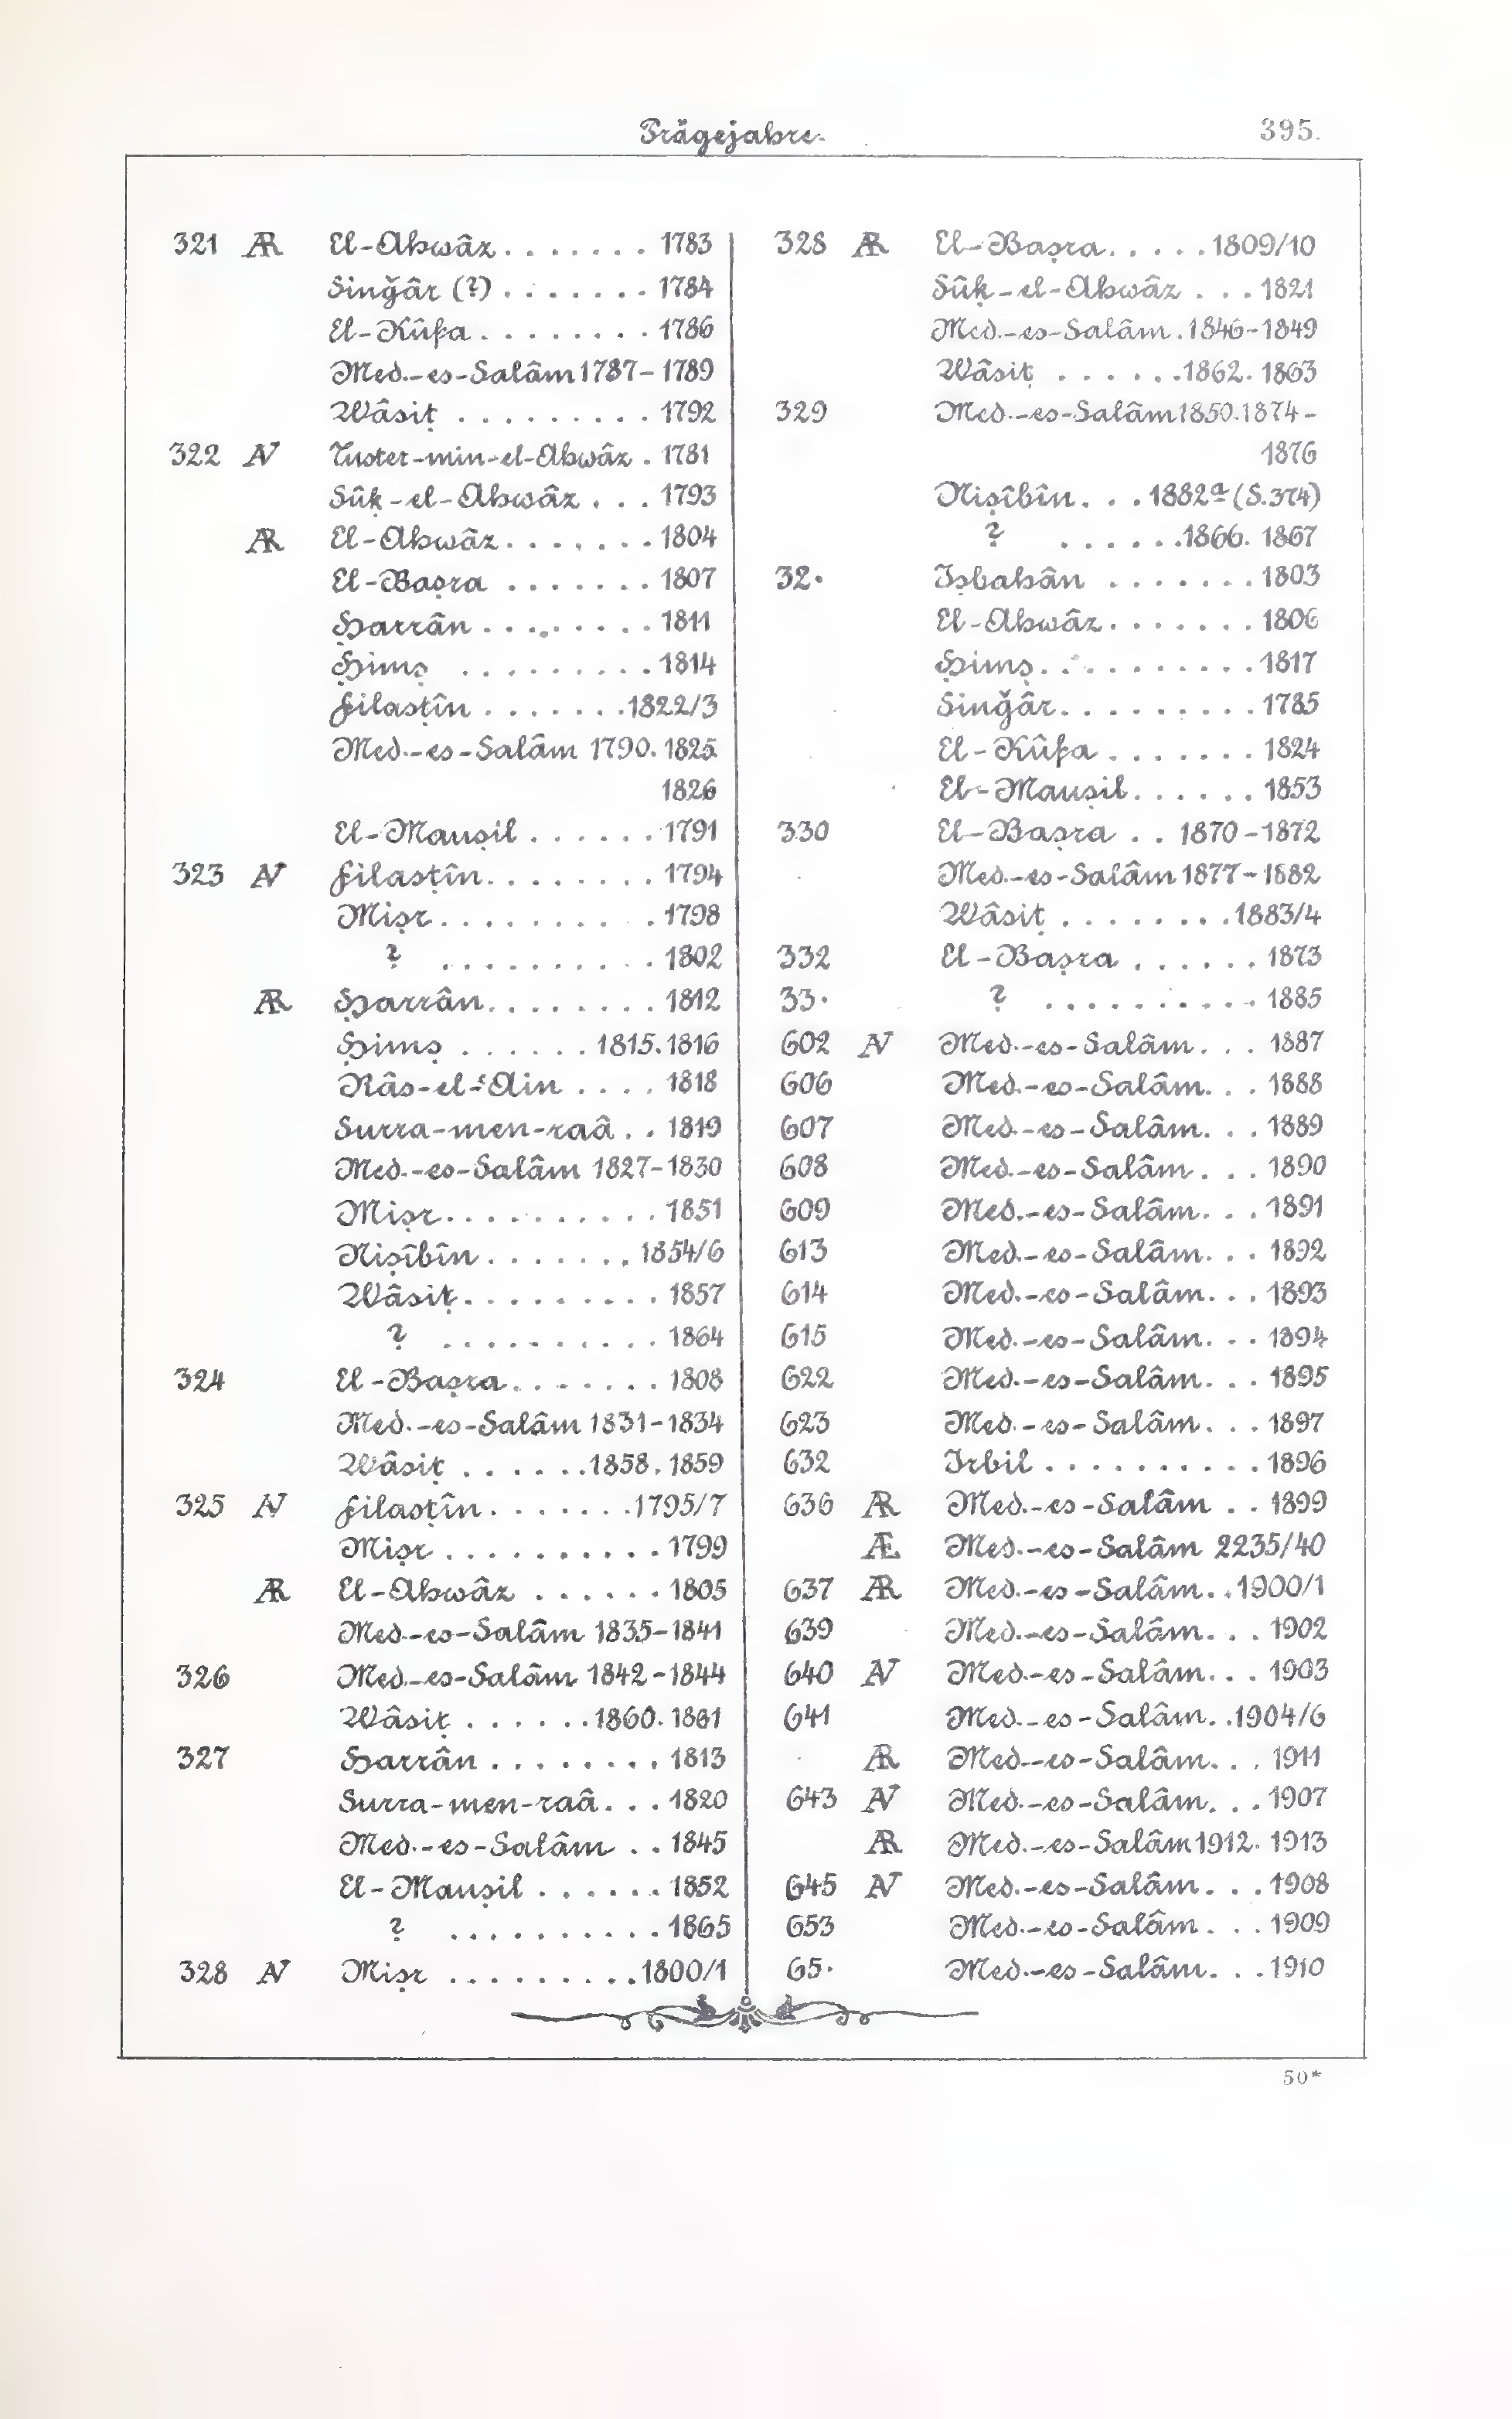 Prägejahre.
395.
321 AR El-Ahwâz . . . . . . . 1783
Sinǧâr (?) . . . . . . . 1784
El-Kûfa . . . . . . . . 1786
Med.-es-Salâm 1787-1789
Wâsiṭ . . . . . . . . . 1792
322 AV Tuster-min-el-Ahwâz . 1781
Sûḳ-el-Ahwâz . . . 1793
AR El-Ahwâz . . . . . . . 1804
El-Baṣra . . . . . . . 1807
Ḥarrân . . . . . . . . . 1811
Ḥimṣ . . . . . . . . . 1814
Filasṭîn . . . . . . . 1822/3
Med.-es-Salâm 1790. 1825.
1826
El-Mauṣil . . . . . . 1791
323 AV Filasṭîn . . . . . . . . 1794
Miṣr . . . . . . . . . . 1798
? . . . . . . . . . . 1802
AR Ḥarrân . . . . . . . . 1812
Ḥimṣ . . . . . . 1815. 1816
Râs-el-ʿAin . . . . 1818
Surra-men-raâ . . 1819
Med.-es-Salâm 1827-1830
Miṣr . . . . . . . . . . 1851
Niṣîbîn . . . . . . . 1854/6
Wâsiṭ . . . . . . . . . 1857
? . . . . . . . . . . 1864
324 El-Baṣra . . . . . . . 1808
Med.-es-Salâm 1831-1834
Wâsiṭ . . . . . . 1858. 1859
325 AV Filasṭîn . . . . . . . 1795/7
Miṣr . . . . . . . . . . 1799
AR El-Ahwâz . . . . . . 1805
Med.-es-Salâm 1835-1841
326 Med.-es-Salâm 1842-1844
Wâsiṭ . . . . . . 1860. 1861
327 Ḥarrân . . . . . . . . 1813
Surra-men-raâ . . . 1820
Med.-es-Salâm . . 1845
El-Mauṣil . . . . . . 1852
? . . . . . . . . . . 1865
328 AV Miṣr . . . . . . . . . 1800/1
328 AR El-Baṣra . . . . . 1809/10
Sûḳ-el-Ahwâz . . . 1821
Med.-es-Salâm . 1846-1849
Wâsiṭ . . . . . . 1862. 1863
329 Med.-es-Salâm 1850. 1874-
1876
Niṣîbîn . . . 1882a (S. 374)
? . . . . . . 1866. 1867
32· Iṣbahân . . . . . . . 1803
El-Ahwâz . . . . . . . 1806
Ḥimṣ . . . . . . . . . . 1817
Sinǧâr . . . . . . . . . 1785
El-Kûfa . . . . . . . 1824
El-Mauṣil . . . . . . 1853
330 El-Baṣra . . 1870-1872
Med.-es-Salâm 1877-1882
Wâsiṭ . . . . . . . . 1883/4
332 El-Baṣra . . . . . . 1873
33· ? . . . . . . . . . . 1885
602 AV Med.-es-Salâm . . . 1887
606 Med.-es-Salâm . . . 1888
607 Med.-es-Salâm . . . 1889
608 Med.-es-Salâm . . . 1890
609 Med.-es-Salâm . . . 1891
613 Med.-es-Salâm . . . 1892
614 Med.-es-Salâm . . . 1893
615 Med.-es-Salâm . . . 1894
622 Med.-es-Salâm . . . 1895
623 Med.-es-Salâm . . . 1897
632 Irbil . . . . . . . . . . 1896
636 AR Med.-es-Salâm . . 1899
Æ Med.-es-Salâm 2235/40
637 AR Med.-es-Salâm . . 1900/1
639 Med.-es-Salâm . . . 1902
640 AV Med.-es-Salâm . . . 1903
641 Med.-es-Salâm . . 1904/6
AR Med.-es-Salâm . . . 1911
643 AV Med.-es-Salâm . . . 1907
AR Med.-es-Salâm 1912. 1913
645 AV Med.-es-Salâm . . . 1908
653 Med.-es-Salâm . . . 1909
65· Med.-es-Salâm . . . 1910
50*